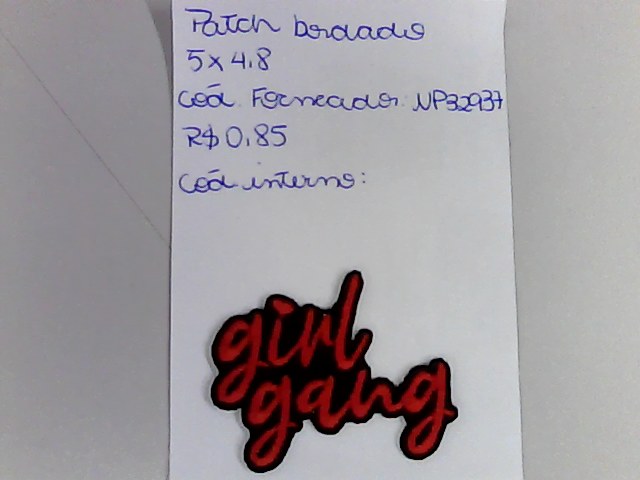 Patch bordado
5x4.8
Cód. Forneador: NP32937
R$ 0.85
Cód interno:
girl
gang